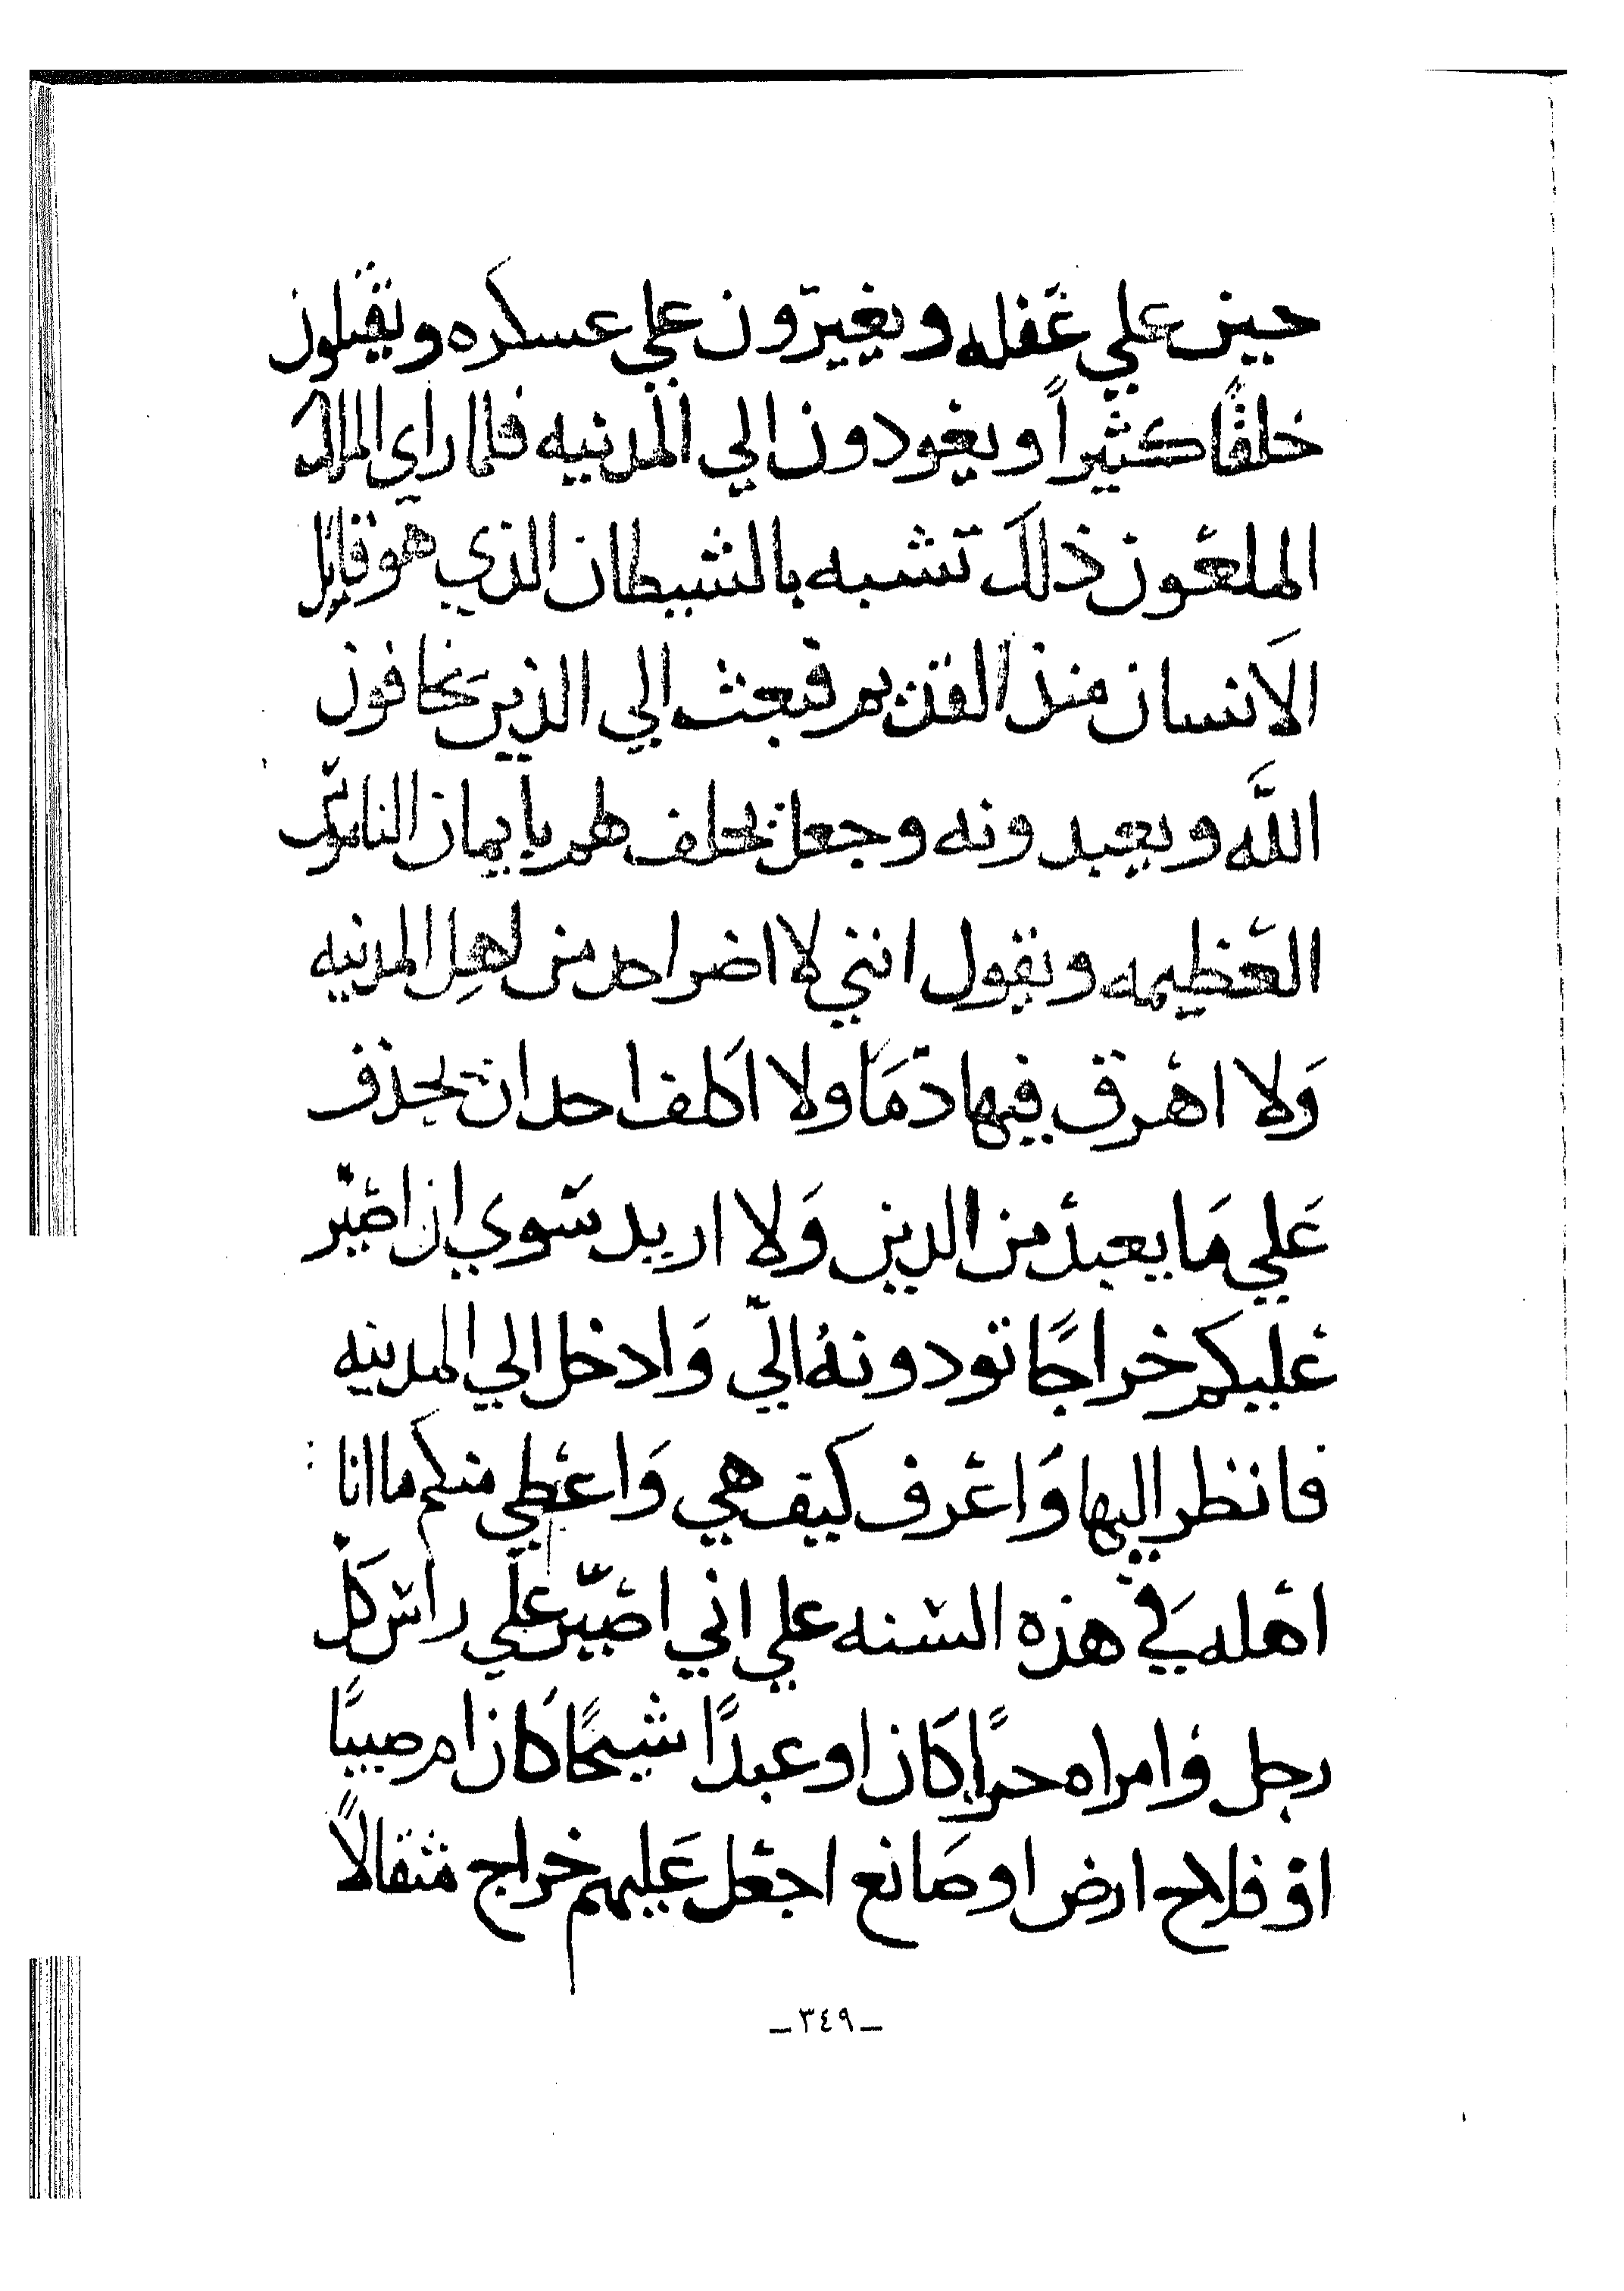 حين علي غفله ويغيرون علي عسكره ويقتلون
خلقًا كثيراً ويعودون الي المدنيه فلما راي الملك
الملعون ذلك تشبه بالشيطان الذي هو قاتل
الانسان منذ القديم فبعث الي الذين يخافون
الله ويعبدونه وجعل يحلف لهم بايمان الناموس
العظيمه ويقول انني لا اضر احد من اهل المدنيه
وَلا اهرق فيها دمَا ولا اكلف احد ان يجدف
عَلي مَا يعبد من الدين وَلا اريد سوي ان اصير
عليكم خراجًا تودونهُ اليّ وَادخل الي المدينه
فانظر اليها وَاعرف كيف هي وَاعطي منكم ما انا
اهله في هذه السنه علي اني اصيّر علي راس كل
رجل وامراه حرًا كان او عبدًا شيخًا كان ام صبيًا
او فلاح ارض او صَانع اجعل عَليهم خراج مثقالاً
ـ ٣٤٩ ـ